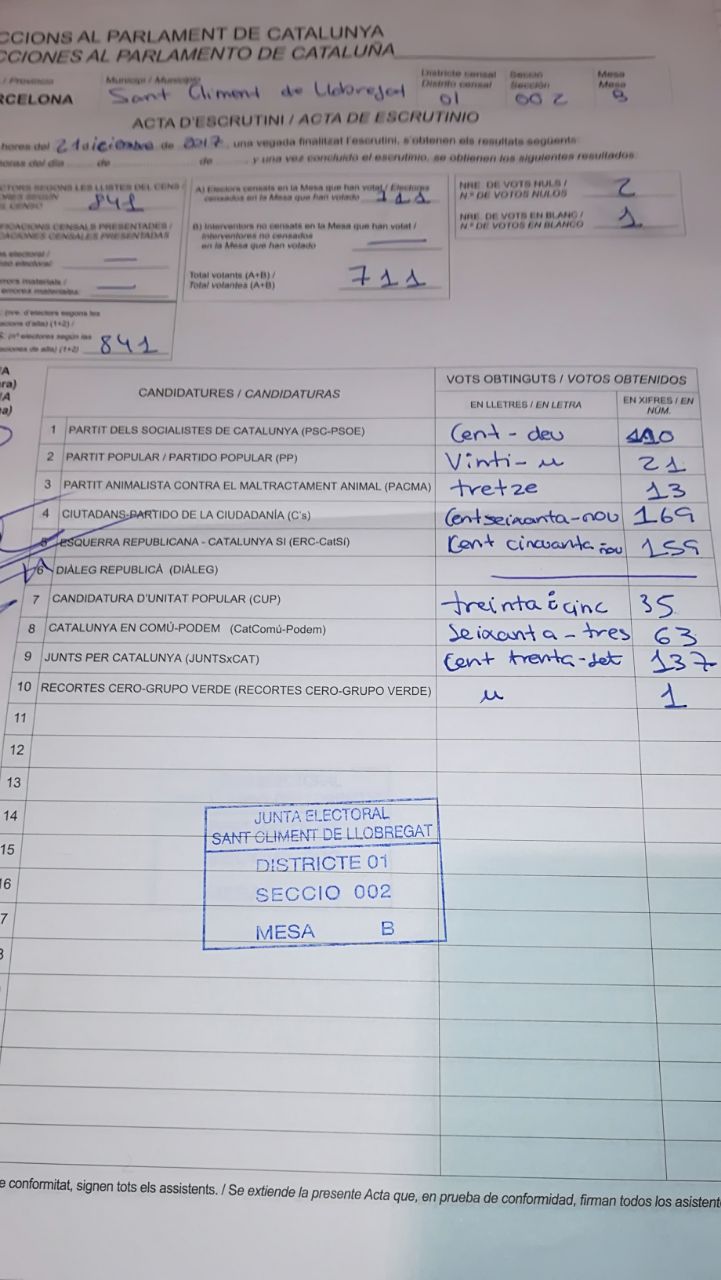 CCIONS AL PARLAMENT DE CATALUNYA
CCIONES AL PARLAMENTO DE CATALUÑA
/ Provincia
Municipi / Municipio
Districte censal
Distrito censal
Secció
Sección
Mesa
Mesa
RCELONA
Sant Climent de Llobregat
01
002
B
ACTA D'ESCRUTINI / ACTA DE ESCRUTINIO
hores del 21 diciembre de 2017, una vegada finalitzat l'escrutini, s'obtenen els resultats següents:
oras del día de de y una vez concluido el escrutinio, se obtienen los siguientes resultados:
CTORS SEGONS LES LLISTES DEL CENS /
ORES SEGÚN
CENSO
841
A) Electors censats en la Mesa que han votat / Electores
censados en la Mesa que han votado
711
NRE. DE VOTS NULS /
N.º DE VOTOS NULOS
2
NRE. DE VOTS EN BLANC /
N.º DE VOTOS EN BLANCO
1
FICACIONS CENSALS PRESENTADES /
CACIONES CENSALES PRESENTADAS
B) Interventors no censats en la Mesa que han votat /
Interventores no censados
en la Mesa que han votado
s electoral /
so electoral:
rrors materials /
errores materiales:
Total votants (A+B) /
Total votantes (A+B)
711
(nre. d'electors segons les
acions d'alta) (1+2) /
(nº electores según las
aciones de alta) (1+2)
841
A
ra)
A
a)
CANDIDATURES / CANDIDATURAS
VOTS OBTINGUTS / VOTOS OBTENIDOS
EN LLETRES / EN LETRA
EN XIFRES / EN NÚM.
1 PARTIT DELS SOCIALISTES DE CATALUNYA (PSC-PSOE) Cent - deu 110
2 PARTIT POPULAR / PARTIDO POPULAR (PP) Vinti - u 21
3 PARTIT ANIMALISTA CONTRA EL MALTRACTAMENT ANIMAL (PACMA) tretze 13
4 CIUTADANS-PARTIDO DE LA CIUDADANÍA (C's) Cent seixanta-nou 169
5 ESQUERRA REPUBLICANA - CATALUNYA SI (ERC-CatSí) Cent cincuanta nou 159
6 DIÀLEG REPUBLICÀ (DIÀLEG)
7 CANDIDATURA D'UNITAT POPULAR (CUP) treinta i cinc 35
8 CATALUNYA EN COMÚ-PODEM (CatComú-Podem) Seixanta - tres 63
9 JUNTS PER CATALUNYA (JUNTSxCAT) Cent trenta-set 137
10 RECORTES CERO-GRUPO VERDE (RECORTES CERO-GRUPO VERDE) u 1
11
12
13
14
15
16
7
JUNTA ELECTORAL
SANT CLIMENT DE LLOBREGAT
DISTRICTE 01
SECCIO 002
MESA B
e conformitat, signen tots els assistents. / Se extiende la presente Acta que, en prueba de conformidad, firman todos los asistent